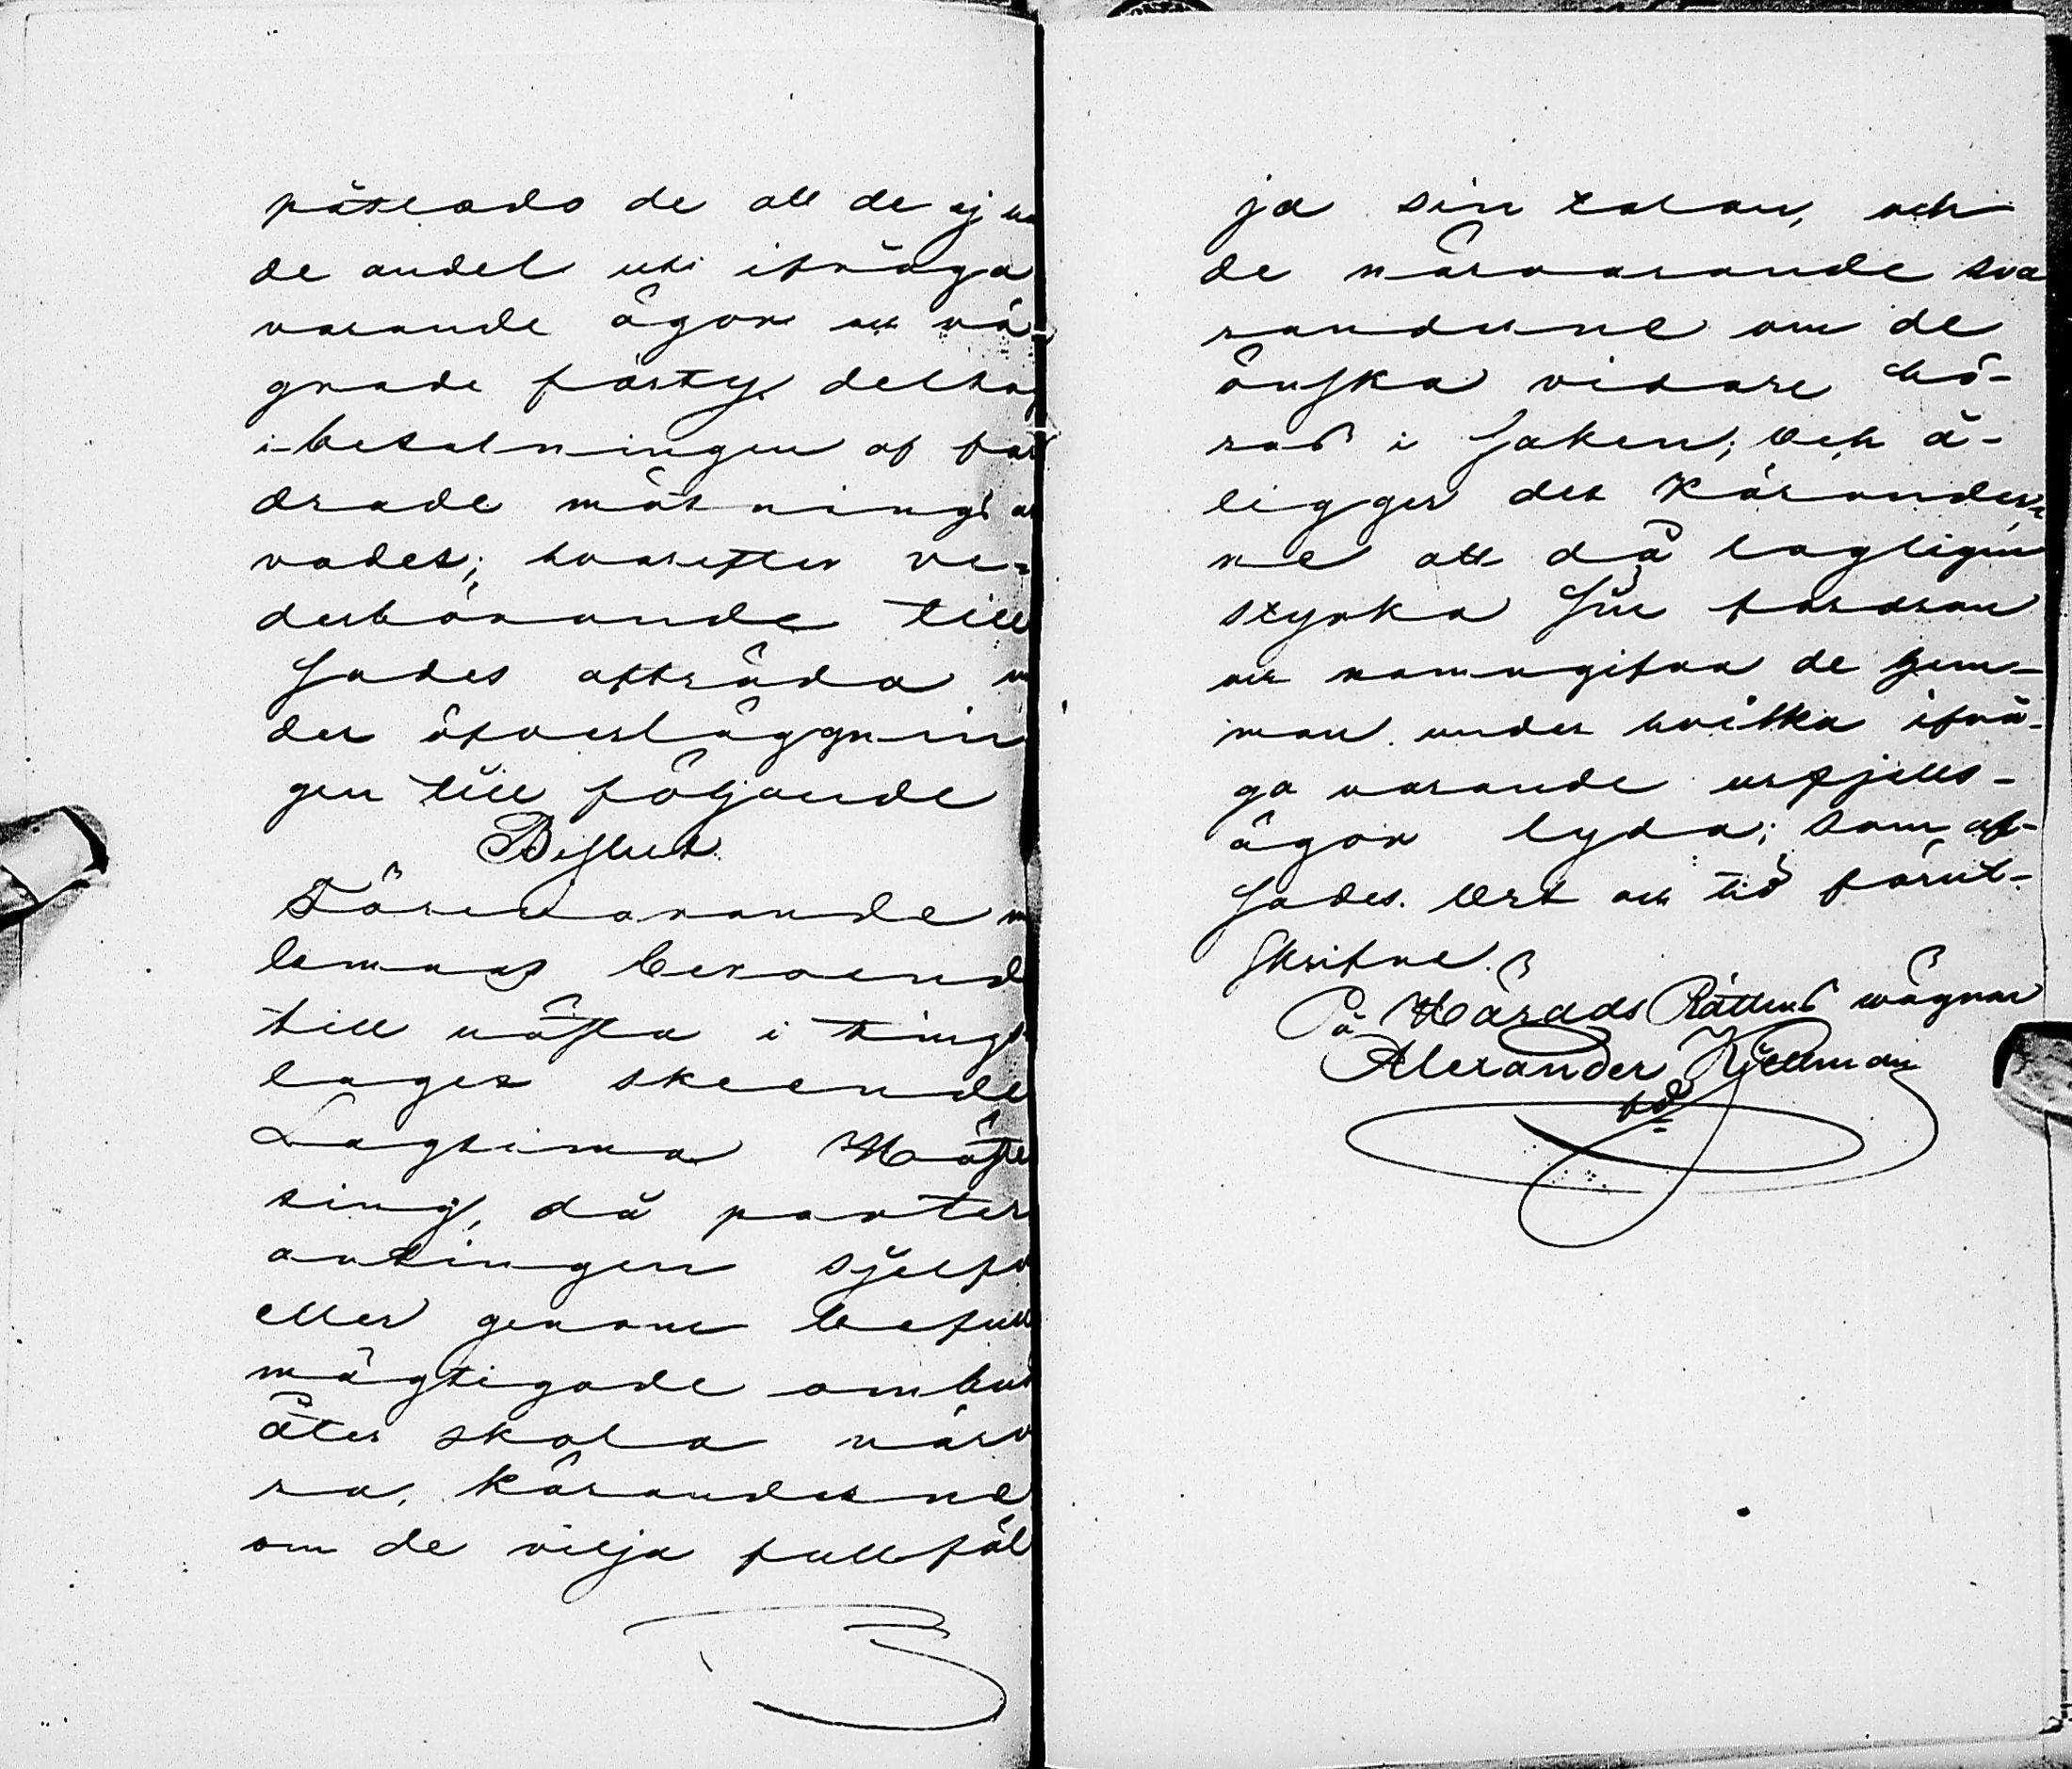 påstods de att de ej ha
de andel uti ifråga
varande ägor och vä-
grade förty deltag
i betalningen af for
drade mätnings ar
vodet; hvarefter ve-
derbörande till
sades afträda un
der öfverläggnin
gen till följande
Beslut.
Föreevarande m
lemnas beroend
till nästa i tings
laget skeende
Lagtima Höste
ting, då parter
antingen sjelfv
eller genom befull
mägtigade ombud
åter skola närv
ra, kärandene
om de vilja fullföl
ja sin talan, och
de närvarande sva
randene om de
önska vidare hö-
ras i saken; och å-
ligger det Kärander-
ne att då lagligen
styrka sin fordran
och namngifva de hem-
man under hvilka ifrå-
ga varande urfjells-
ägor lyda; som af-
sades. Ort och tid förut-
skrifne.
På Härads Rättens wägnar
Alexander Kjellman